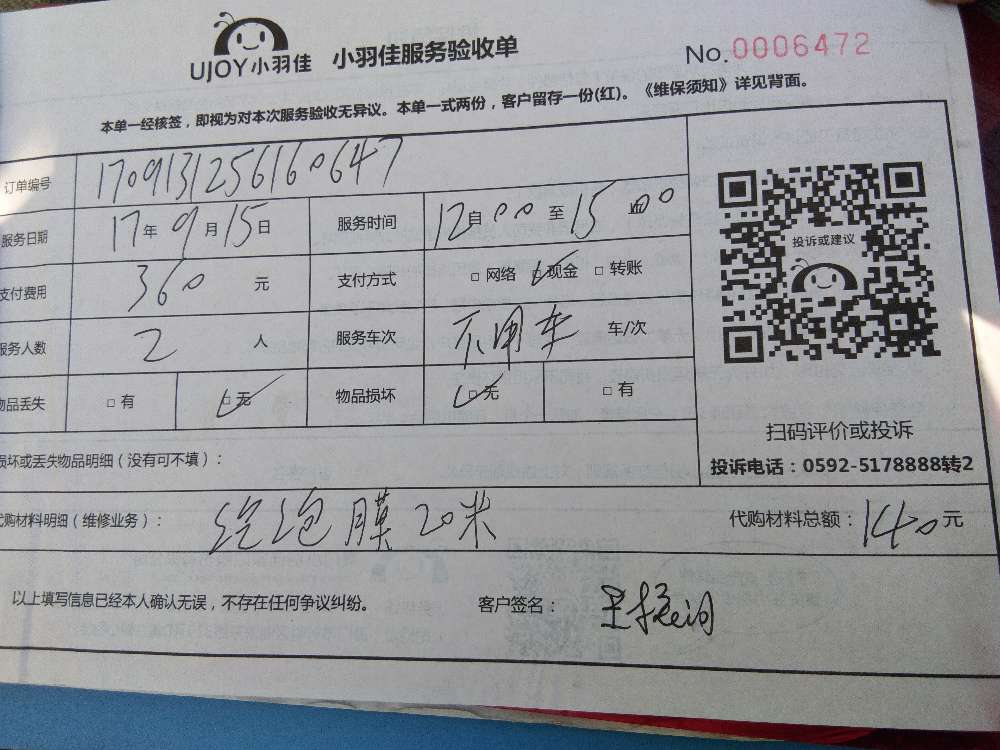 UJOY小羽佳 小羽佳服务验收单 No.0006472
本单一经核签，即视为对本次服务验收无异议。本单一式两份，客户留存一份(红)。《维保须知》详见背面。
订单编号 1709131256160647
服务日期 17年9月15日 服务时间 12时00至15时00
支付费用 360 元 支付方式 □网络 □现金 □转账
服务人数 2 人 服务车次 不用车 车/次
物品丢失 □有 □无 物品损坏 □无 □有
投诉或建议
扫码评价或投诉
投诉电话：0592-5178888转2
损坏或丢失物品明细（没有可不填）：
代购材料明细（维修业务）： 泡膜20米 代购材料总额：140元
以上填写信息已经本人确认无误，不存在任何争议纠纷。 客户签名：